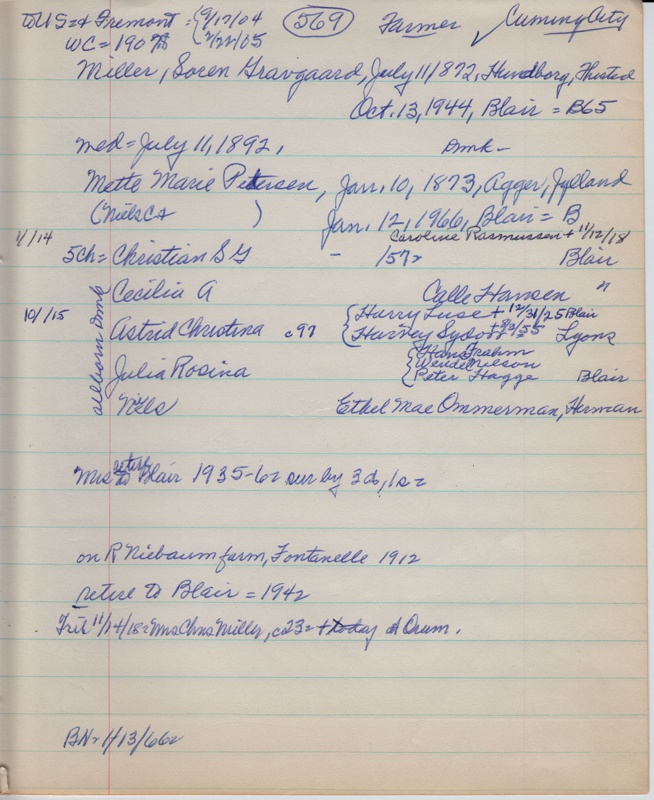 to US=& Fremont = {9/17/04 (569) Farmer ✓ Cuming City
WC = 1907 {2/22/05
Miller, Soren Gravgaard, July 11/1872, Hundborg, Thisted
Oct. 13, 1944, Blair = B65
Med = July 11, 1892, Dmk -
Mette Marie Petersen, Jan. 10, 1873, Agger, Jylland
(Niels CA ) Jan. 12, 1966, Blair = B
1/14 Caroline Rasmussen + 11/12/18
5Ch = Christian S G - /57 Blair
Cecilia A Calle Hansen "
10/15 {Harry Luse + 12/31/25 Blair
Astrid Christina c97 {Harvey + 9/3/55 Lyons
{Hans Frahm
{Wendel Nelson
Julia Rosina {Peter Hagge Blair
all born Dmk
Niels Ethel Mae Ommerman, Herman
Mrs retire to Blair 1935-62 sur by 3d, 1s =
on R Niebaum farm, Fontanelle 1912
retire to Blair = 1942
Trib 11/14/18 = Mrs Chris Miller, c23 = + today at Orum.
BN = 1/13/66